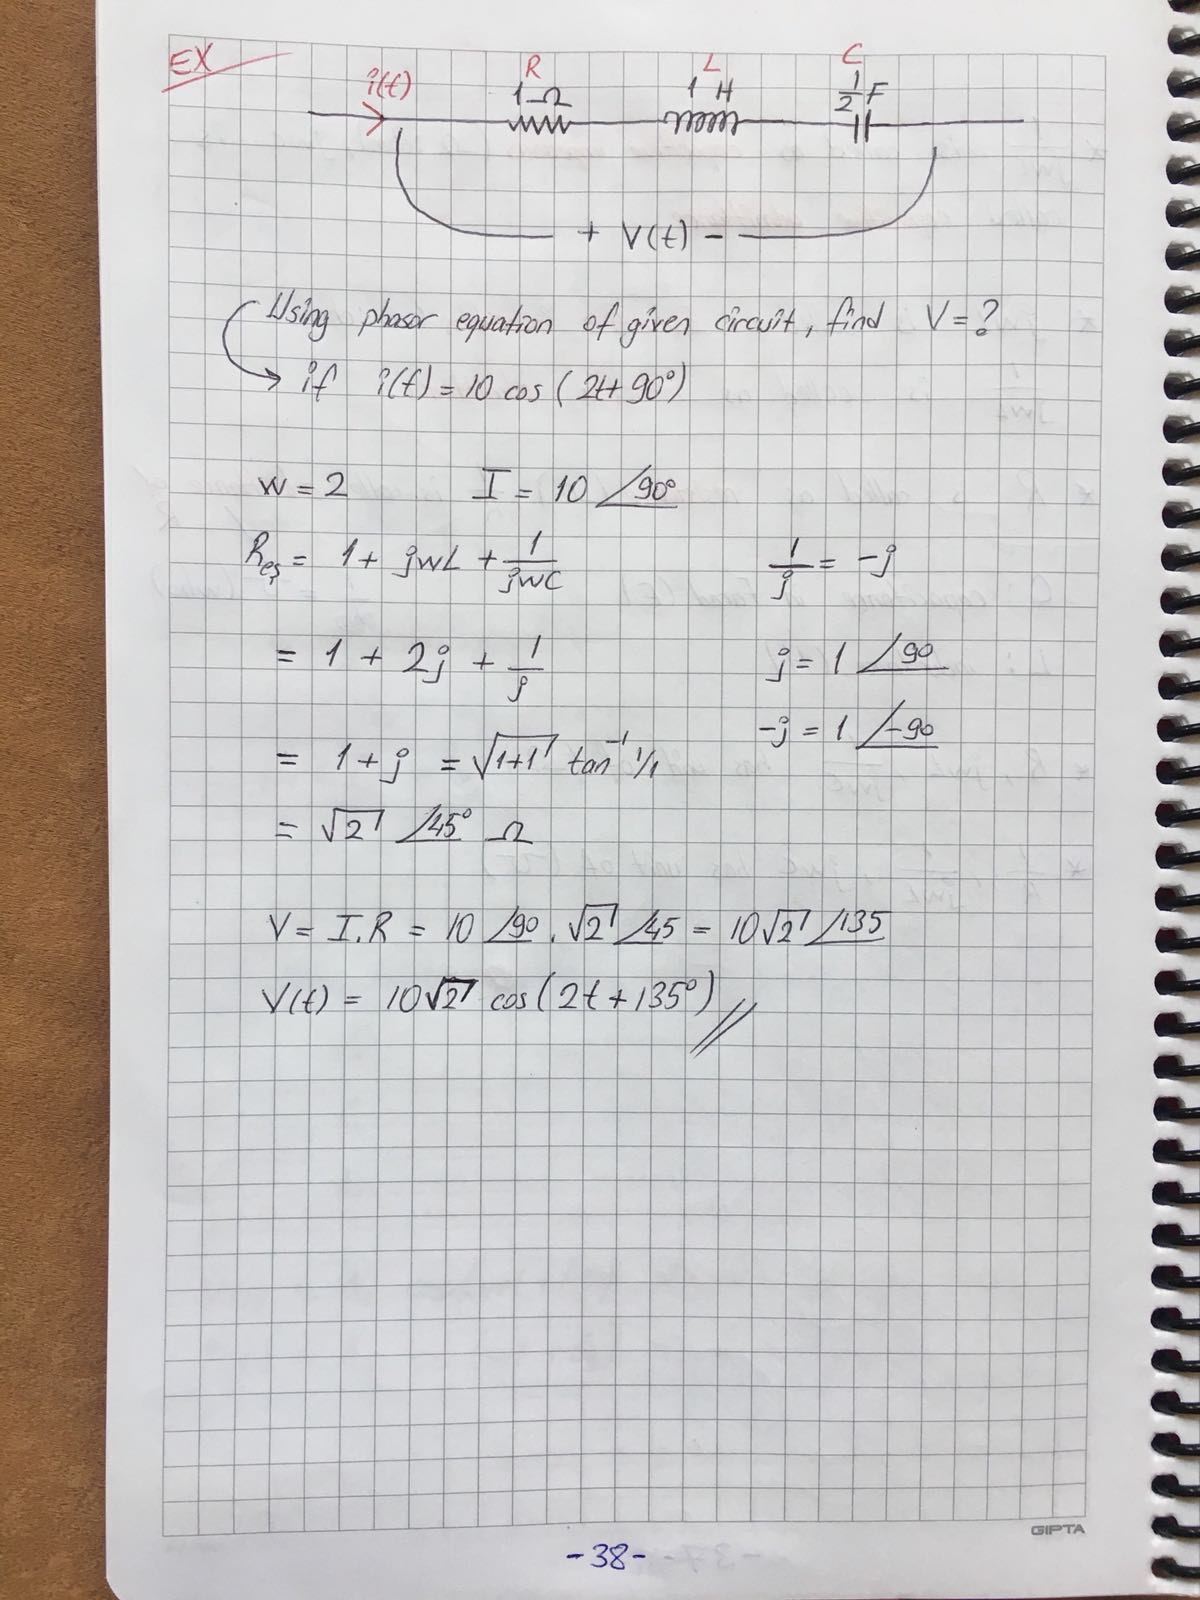 EX
i(t) R L C
1 Ω 1 H 1/2 F
+ V(t) -
Using phasor equation of given circuit, find V = ?
if i(t) = 10 cos (2t + 90°)
w = 2 I = 10 ∠90°
Reş = 1 + jwL + 1/jwC 1/j = -j
= 1 + 2j + 1/j j = 1 ∠90
-j = 1 ∠-90
= 1 + j = √1+1 tan⁻¹ 1/1
= √2 ∠45° Ω
V = I.R = 10 ∠90 . √2 ∠45 = 10√2 ∠135
V(t) = 10√2 cos (2t + 135°) //
GIPTA
-38-